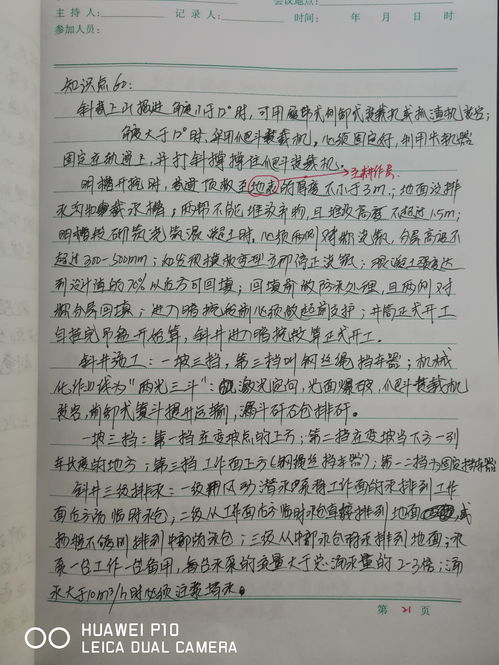 会议地点:
主 持 人: 记 录 人: 时间: 年 月 日
参加人员:
知识点60:
斜巷上山掘进 角度小于12°时,可用
角度大于12°时,采用耙斗装载机,必须固定好,利用卡轨器
固定在轨道上,并打斜撑撑住耙斗装载机。
主斜井名
明槽开挖时,巷道顶板至地表的高度不小于3m;地面设排
水沟和截水槽;两帮不能堆放弃物,且堆放高度不超过1.5m;
明槽段砌筑浇筑混凝土时,必须两侧对称浇筑,分层高度不
超过300-500mm;如发现模板变型立即停止浇筑;混凝土强度达
到设计值的70%以后方可回填;回填前做防水处理,且两侧对
称分层回填;进入暗挖段前必须做超前支护;井筒正式开工
自 开始算,斜井进入暗挖段算正式开工。
斜井施工:一坡三挡,第三挡叫钢丝绳挡车器;机械
化作业线为"两光三斗":激光定向,光面爆破,耙斗装载机
装岩,前卸式箕斗提升运输,漏斗矸石仓排矸。
一坡三挡:第一挡在变坡点的上方;第二挡在变坡点下方一列
车长度的地方;第三挡工作面上方(钢丝绳挡车器);第一二挡为固定挡车器
斜井三级排水:一级用风动潜水泵将工作面的水排到工作
面后方临时水仓,二级从工作面后方临时水仓直接排到地面,或
扬程不够则排到中部的水仓;三级从中部水仓将水排到地面;水
泵一台工作一台备用,每台水泵的流量大于总涌水量的2-3倍;涌
水大于10m³/h时必须注浆堵水。
第 21 页
HUAWEI P10
LEICA DUAL CAMERA